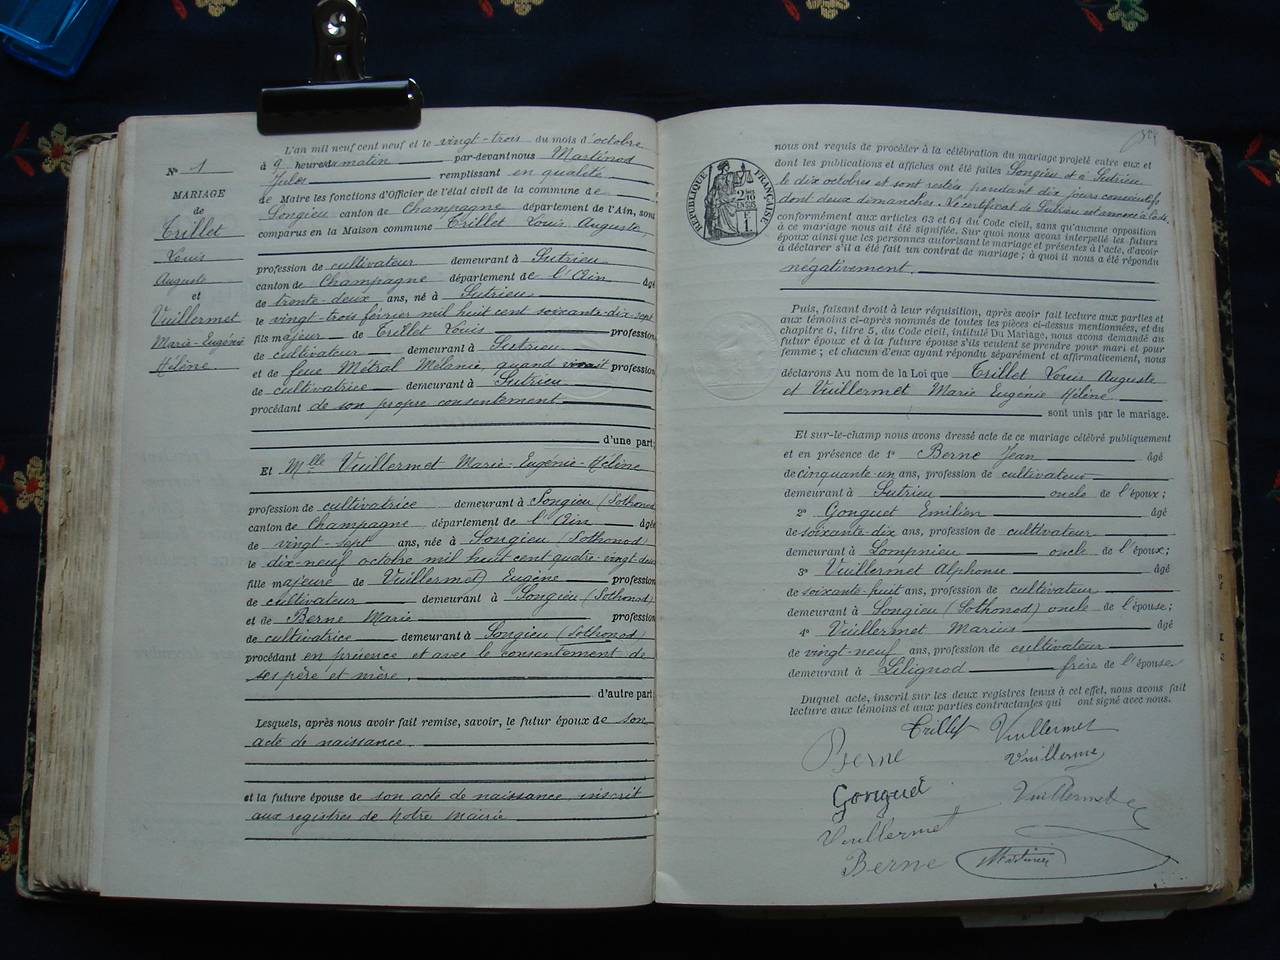 Nº 1
MARIAGE
de
Trillet
Louis
Auguste
et
Vuillermet
Marie-Eugénie
Hélène.
L'an mil neuf cent neuf et le vingt-trois du mois d'octobre
à 9 heures du matin par-devant nous Martinod
Jules remplissant en qualité
de Maire les fonctions d'Officier de l'état civil de la commune de
Songieu canton de Champagne département de l'Ain, sont
comparus en la Maison commune Trillet Louis Auguste,
profession de cultivateur demeurant à Sutrieu
canton de Champagne département de l'Ain âgé
de trente-deux ans, né à Sutrieu
le vingt-trois février mil huit cent soixante-dix-sept
fils majeur de Trillet Louis profession
de cultivateur demeurant à Sutrieu
et de feue Métral Mélanie, quand vivait profession
de cultivatrice demeurant à Sutrieu
procédant de son propre consentement
d'une part;
Et Mlle Vuillermet Marie-Eugénie-Hélène
profession de cultivatrice demeurant à Songieu (Sothonod)
canton de Champagne département de l'Ain âgé
de vingt-sept ans, née à Songieu (Sothonod)
le dix-neuf octobre mil huit cent quatre-vingt-deux
fille majeure de Vuillermet Eugène profession
de cultivateur demeurant à Songieu (Sothonod)
et de Berne Marie profession
de cultivatrice demeurant à Songieu (Sothonod)
procédant en présence et avec le consentement de
ses père et mère.
d'autre part;
Lesquels, après nous avoir fait remise, savoir, le futur époux de son
acte de naissance.
et la future épouse de son acte de naissance inscrit
aux registres de notre mairie
RÉPUBLIQUE FRANÇAISE
nous ont requis de procéder à la célébration du mariage projeté entre eux et
dont les publications et affiches ont été faites Songieu et à Sutrieu
le dix octobre et sont restés pendant dix jours consécutifs
dont deux dimanches. Le certificat de Sutrieu est annexé à l'acte.
conformément aux articles 63 et 64 du Code civil, sans qu'aucune opposition
à ce mariage nous ait été signifiée. Sur quoi nous avons interpellé les futurs
époux ainsi que les personnes autorisant le mariage et présentes à l'acte, d'avoir
à déclarer s'il a été fait un contrat de mariage; à quoi il nous a été répondu
négativement.
Puis, faisant droit à leur réquisition, après avoir fait lecture aux parties et
aux témoins ci-après nommés de toutes les pièces ci-dessus mentionnées, et du
chapitre 6, titre 5, du Code civil, intitulé Du Mariage, nous avons demandé au
futur époux et à la future épouse s'ils veulent se prendre pour mari et pour
femme; et chacun d'eux ayant répondu séparément et affirmativement, nous
déclarons Au nom de la Loi que Trillet Louis Auguste
et Vuillermet Marie Eugénie Hélène
sont unis par le mariage.
Et sur-le-champ nous avons dressé acte de ce mariage célébré publiquement
et en présence de 1º Berne Jean âgé
de cinquante-un ans, profession de cultivateur
demeurant à Sutrieu oncle de l'époux;
2º Gonguet Emilien âgé
de soixante-dix ans, profession de cultivateur
demeurant à Lompnieu oncle de l'époux;
3º Vuillermet Alphonse âgé
de soixante-huit ans, profession de cultivateur
demeurant à Songieu (Sothonod) oncle de l'épouse;
4º Vuillermet Marius âgé
de vingt-neuf ans, profession de cultivateur
demeurant à Lilignod frère de l'épouse
Duquel acte, inscrit sur les deux registres tenus à cet effet, nous avons fait
lecture aux témoins et aux parties contractantes qui ont signé avec nous.
Trillet Vuillermet
Berne Vuillerme
Gonguet Vuillermet
Vuillermet
Berne Martinod